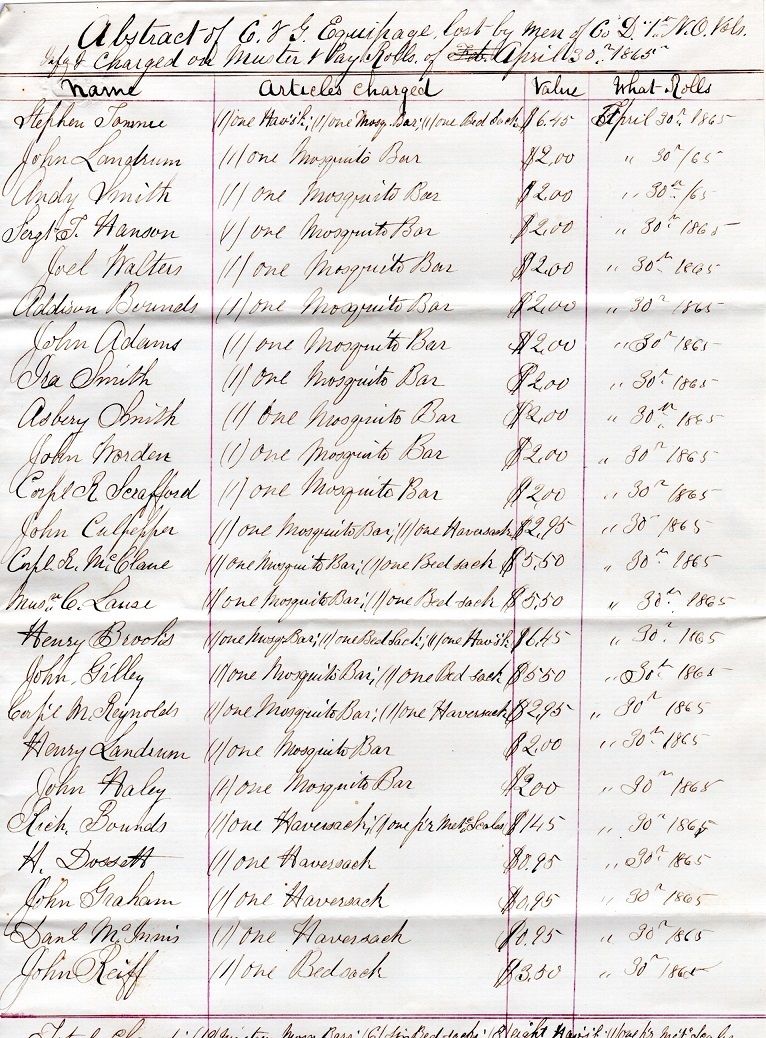 Abstract of C. & G. Equipage, lost by men of Co "D" 1st N.O. Vols.
Infy & Charged on Muster & Pay Rolls of Feb. April 30th 1865
Name Articles charged Value What Rolls
Stephen Tommie (1) one Hav'sk; (1) one Mosq. Bar; (1) one Bed Sack $6.45 April 30th 1865
John Landrum (1) one Mosquito Bar $2.00 " 30th/65
Andy Smith (1) one Mosquito Bar $2.00 " 30th/65
Sergt T. Hanson (1) one Mosquito Bar $2.00 " 30th 1865
Joel Walters (1) one Mosquito Bar $2.00 " 30th 1865
Addison Bounds (1) one Mosquito Bar $2.00 " 30th 1865
John Adams (1) one Mosquito Bar $2.00 " 30th 1865
Ira Smith (1) one Mosquito Bar $2.00 " 30th 1865
Asbery Smith (1) one Mosquito Bar $2.00 " 30th 1865
John Worden (1) one Mosquito Bar $2.00 " 30th 1865
Corpl R Scrafford (1) one Mosquito Bar $2.00 " 30th 1865
John Culpepper (1) one Mosquito Bar; (1) one Haversack $2.95 " 30th 1865
Corpl. E. McClane (1) one Mosquito Bar; (1) one Bed sack $5.50 " 30th 1865
Musn. C. Lause (1) one Mosquito Bar; (1) one Bed sack $5.50 " 30th 1865
Henry Brooks (1) one Mosq Bar; (1) one Bed Sack; (1) one Hav'sk $6.45 " 30th 1865
John. Gilley (1) one Mosquito Bar; (1) one Bed sack $5.50 " 30th 1865
Corp'l M. Reynolds (1) one Mosquito Bar; (1) one Haversack $2.95 " 30th 1865
Henry Landrum (1) one Mosquito Bar $2.00 " 30th 1865
John Haley (1) one Mosquito Bar $2.00 " 30th 1865
Rich. Bounds (1) one Haversack; (1) one p'r Metc Scales $1.45 " 30th 1865
H. Dossett (1) one Haversack $0.95 " 30th 1865
John Graham (1) one Haversack $0.95 " 30th 1865
Danl McInnis (1) one Haversack $0.95 " 30th 1865
John Reiff (1) one Bedsack $3.50 " 30th 1865
Mosq Bars; (6) six Bed sacks; (8) eight Hav'sk; (1) one p'r Metc Scales